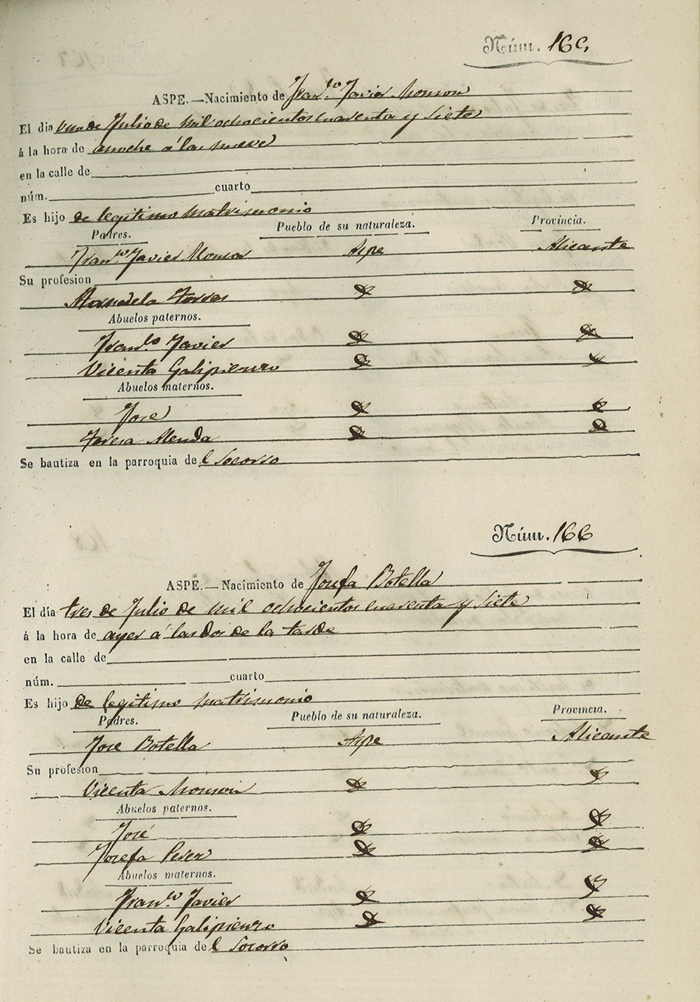 Núm. 165
ASPE.—Nacimiento de Fran.co Javier Monzon
El dia uno de Julio de mil ochocientos cuarenta y siete
á la hora de anoche á las nueve
en la calle de
núm. cuarto
Es hijo de legitimo matrimonio
Padres. Pueblo de su naturaleza. Provincia.
Fran.co Javier Monzon Aspe Alicante
Su profesion
Manuela Torres
Abuelos paternos.
Fran.co Javier
Vicenta Galipienzo
Abuelos maternos.
Jose
Teresa Menda
Se bautiza en la parroquia del Socorro
Núm. 166
ASPE.—Nacimiento de Josefa Botella
El día tres de Julio de mil ochocientos cuarenta y siete
á la hora de ayer á las dos de la tarde
en la calle de
núm. cuarto
Es hijo de legitimo matrimonio
Padres. Pueblo de su naturaleza. Provincia.
Jose Botella Aspe Alicante
Su profesion
Vicenta Monzon
Abuelos paternos.
José
Josefa Perez
Abuelos maternos.
Fran.co Javier
Vicenta Galipienzo
Se bautiza en la parroquia del Socorro